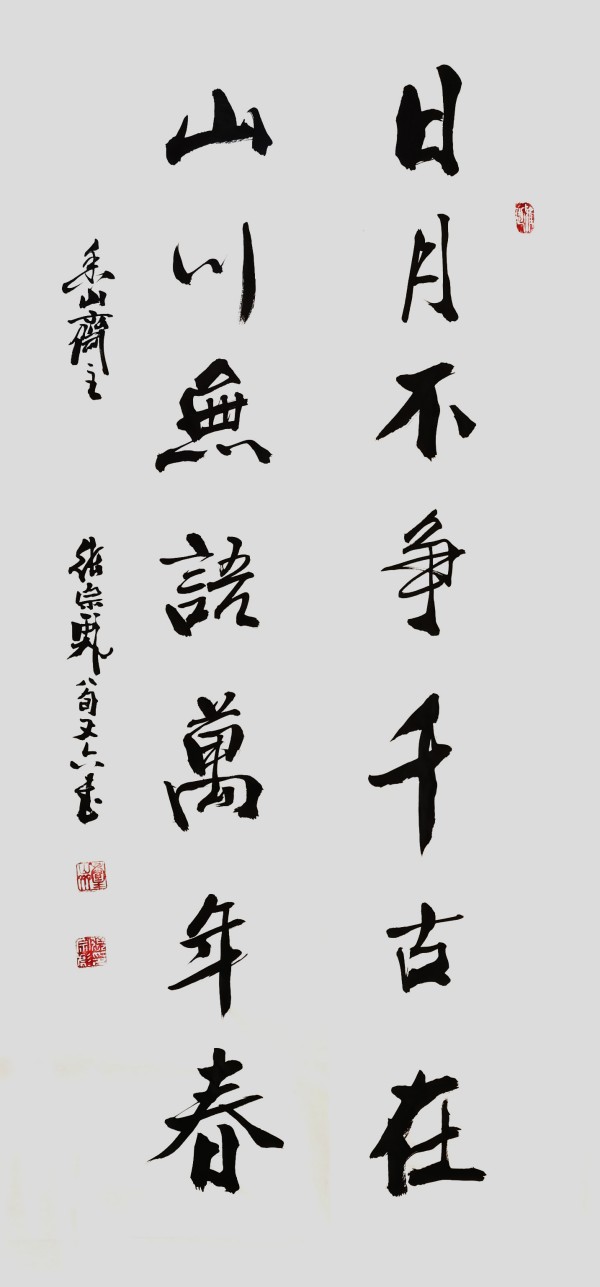 日月不争千古在
山川無語萬年春
山齋主
宗
八旬又六書